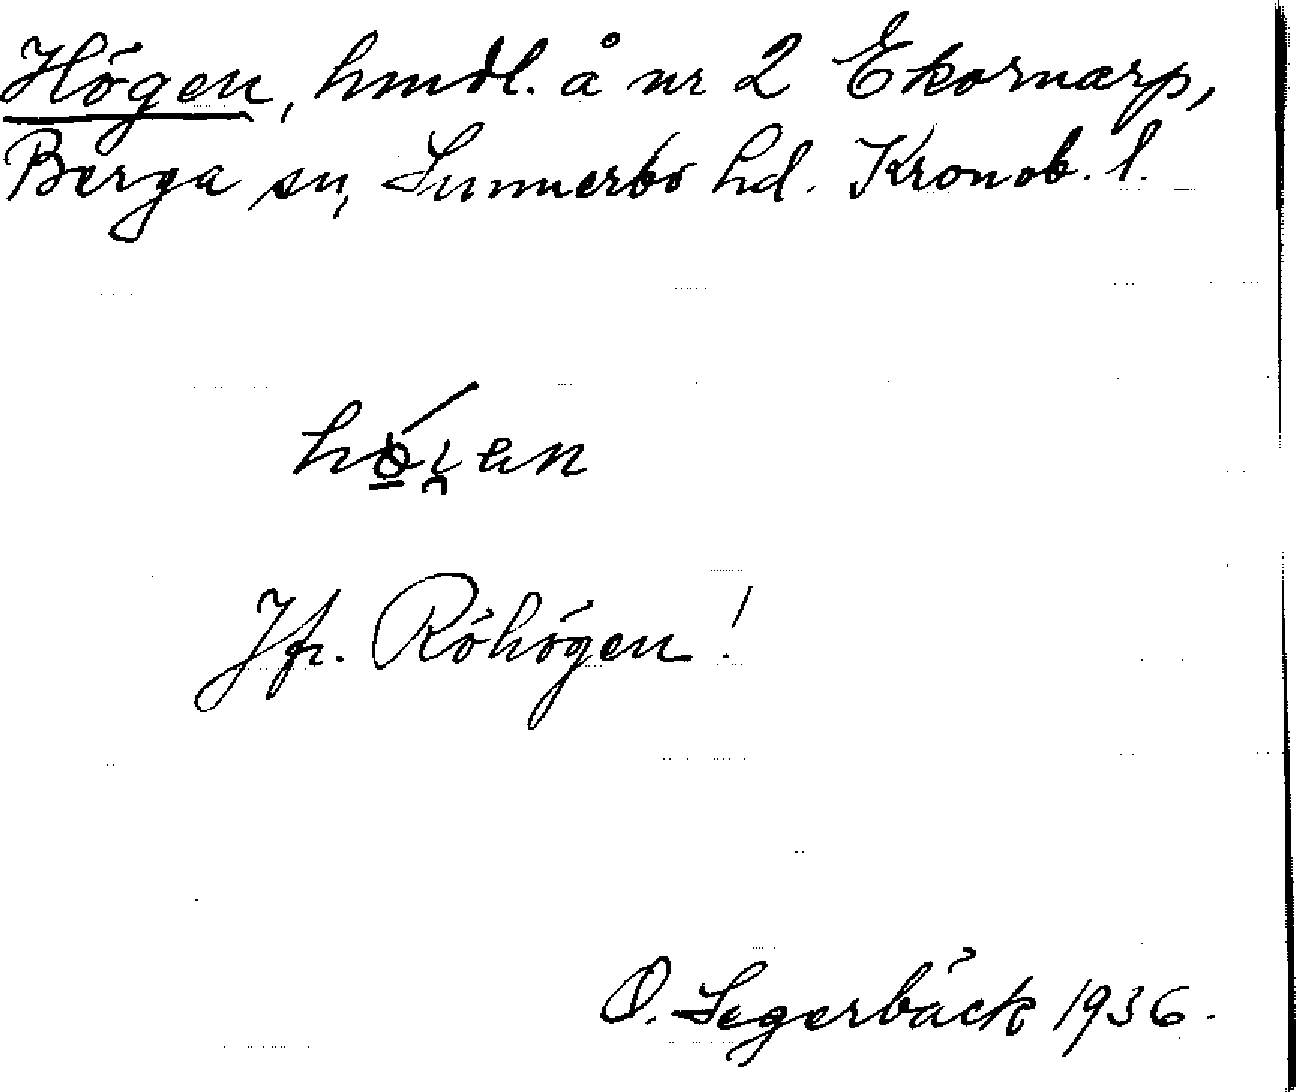 Högen, hmdl. å nr 2 Ekornarp,
Berga sn, Sunnerbo hd. Kronob. l.
Jfr. Röhögen!
O. Segerbäck 1936.